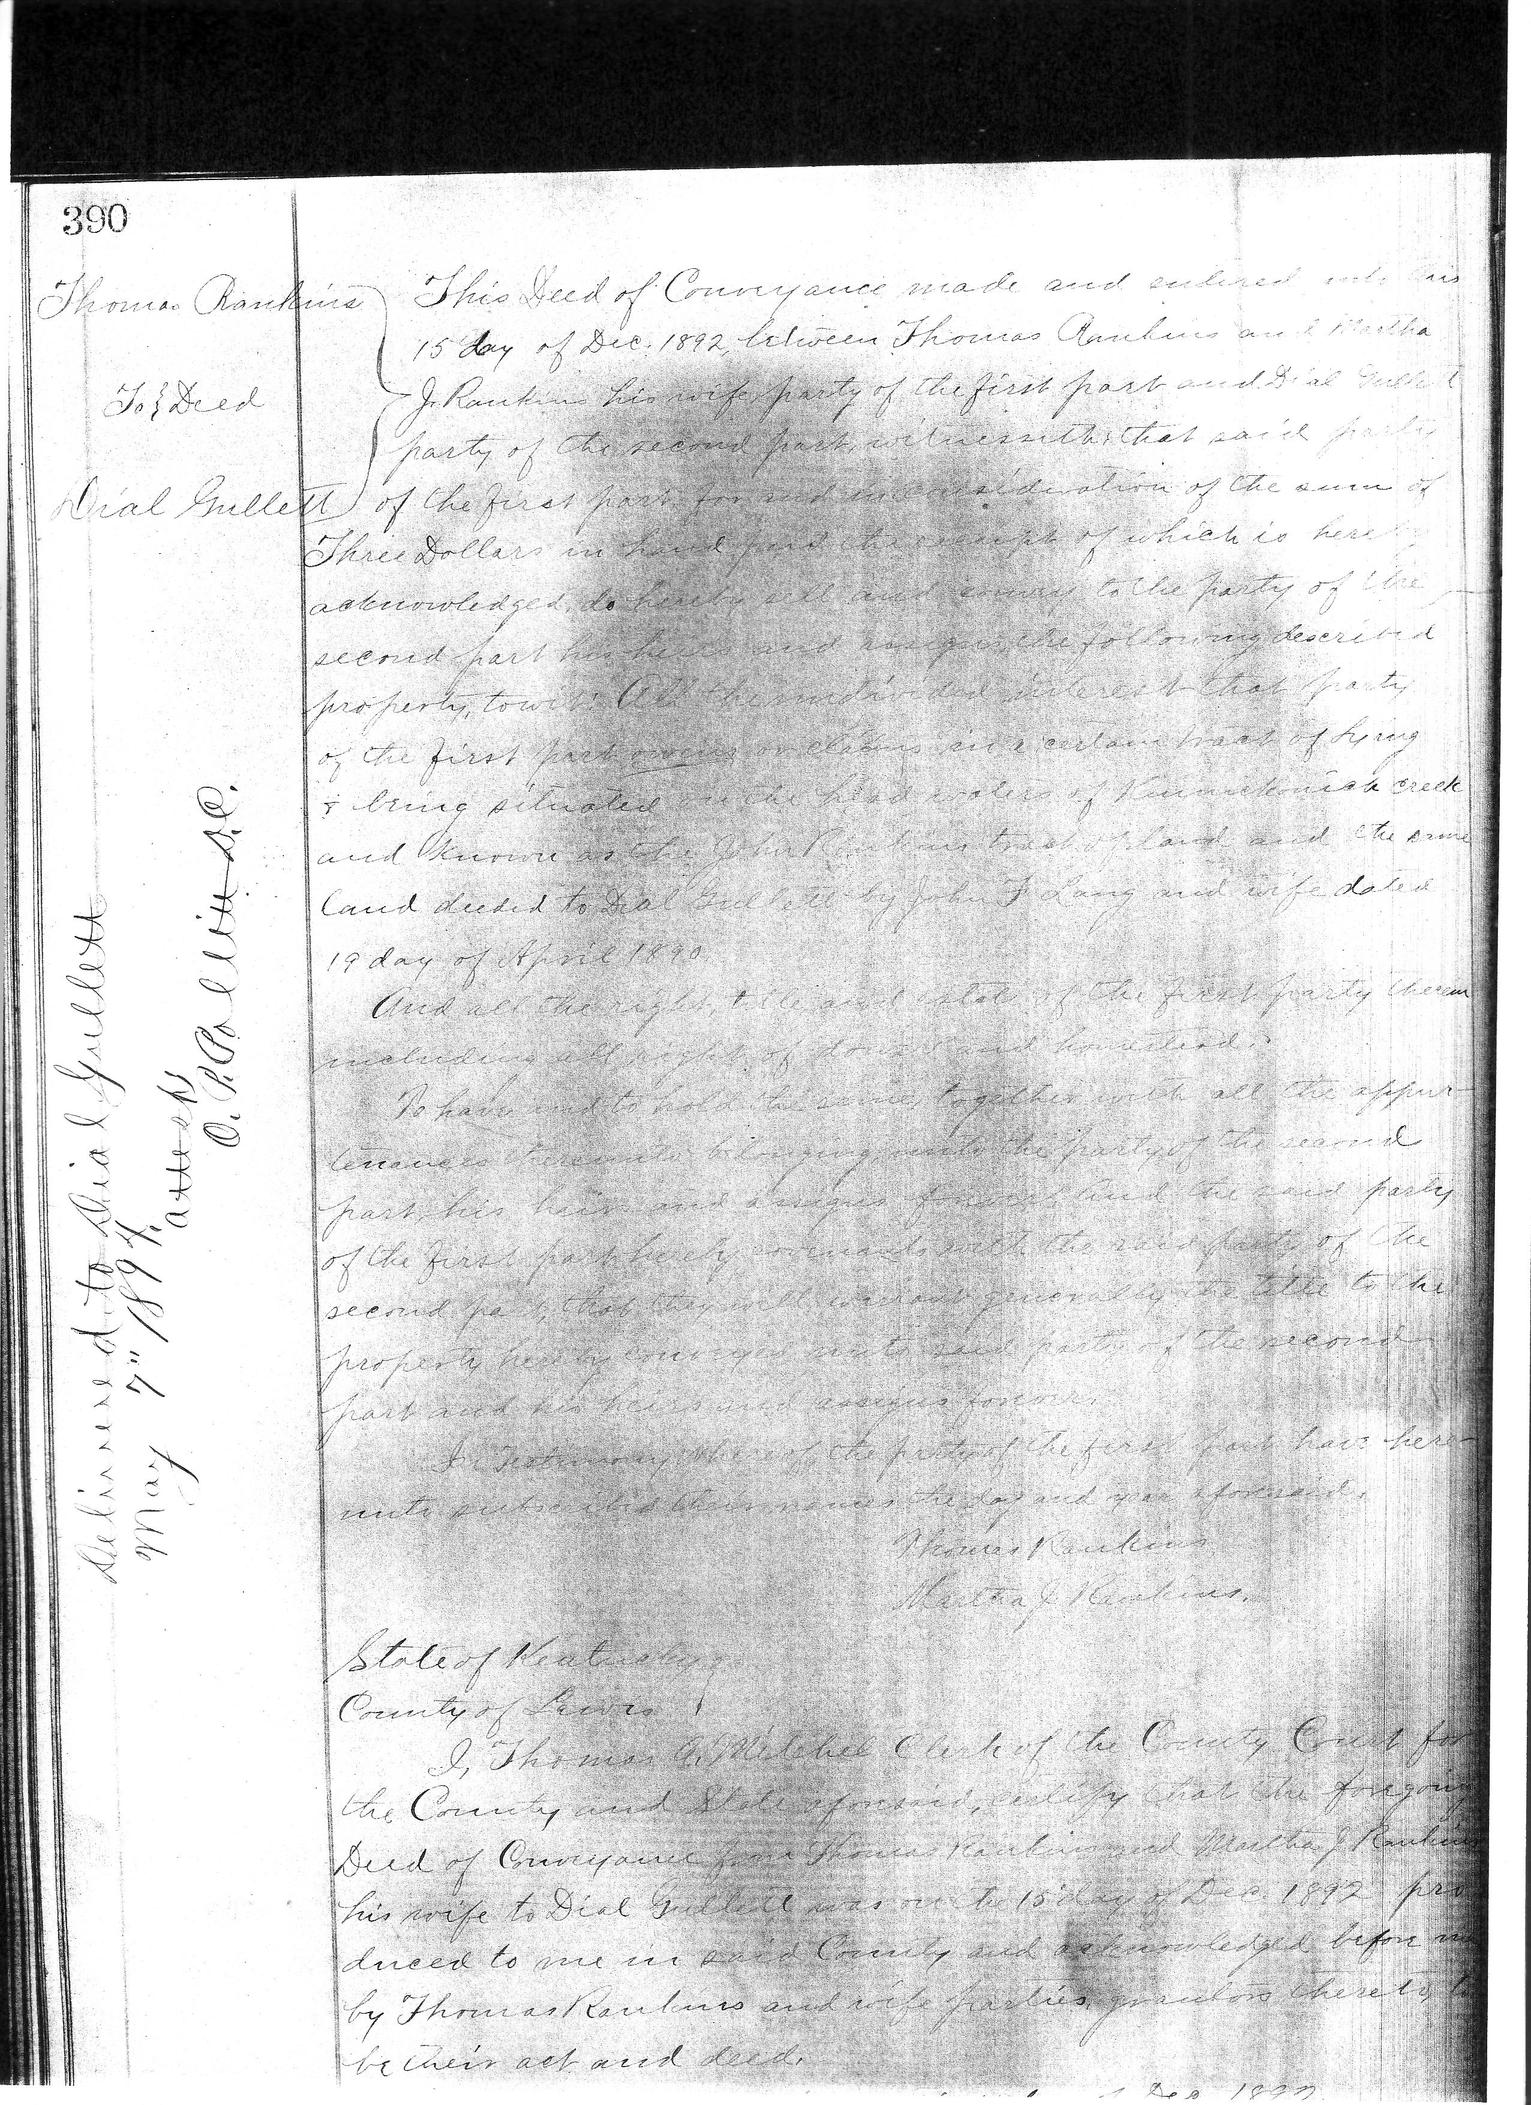 390
Thomas Rankins
To } Deed
Dial Gullett
This Deed of Conveyance made and entered into this
15 day of Dec. 1892, between Thomas Rankins and Martha
J. Rankins his wife, party of the first part and Dial Gullett
party of the second part, witnesseth: that said party
of the first part for and in consideration of the sum of
Three Dollars in hand paid the receipt of which is hereby
acknowledged, do hereby sell and convey to the party of the
second part his heirs and assigns, the following described
property, towit: All the undivided interest that party
of the first part owens or claims in a certain tract of Lying
& being situated on the head waters of Kinnickonick creek
and known as the John Rankins tract of land and the same
land deeded to Dial Gullett by John F Lang and wife dated
19 day of April 1890.
And all the right, title and estate of the first party therein
including all right of dower and homestead.
To have and to hold the same, together with all the appur-
tenances thereunto belonging unto the party of the second
part, his heirs and assigns forever. And the said party
of the first part hereby covenants with the said party of the
second part, that they will warrant generally the title to the
property hereby conveyed unto said party of the second
part and his heirs and assigns forever.
In Testimony whereof, the party of the first part have here-
unto subscribed their names the day and year aforesaid.
Thomas Rankins
Martha J Rankins.
State of Kentucky
County of Lewis
I, Thomas A. Mitchel Clerk of the County Court for
the County and State aforesaid, certify that the foregoing
Deed of Conveyance from Thomas Rankins and Martha J Rankins
his wife to Dial Gullett was on the 15 day of Dec. 1892 pro
duced to me in said County and acknowledged before me
by Thomas Rankins and wife parties grantors thereto, to
be their act and deed.
Dec 1892
Delivered to Dial Gullett
May 7" 1894.
attests
O. P. Pollitt D.C.